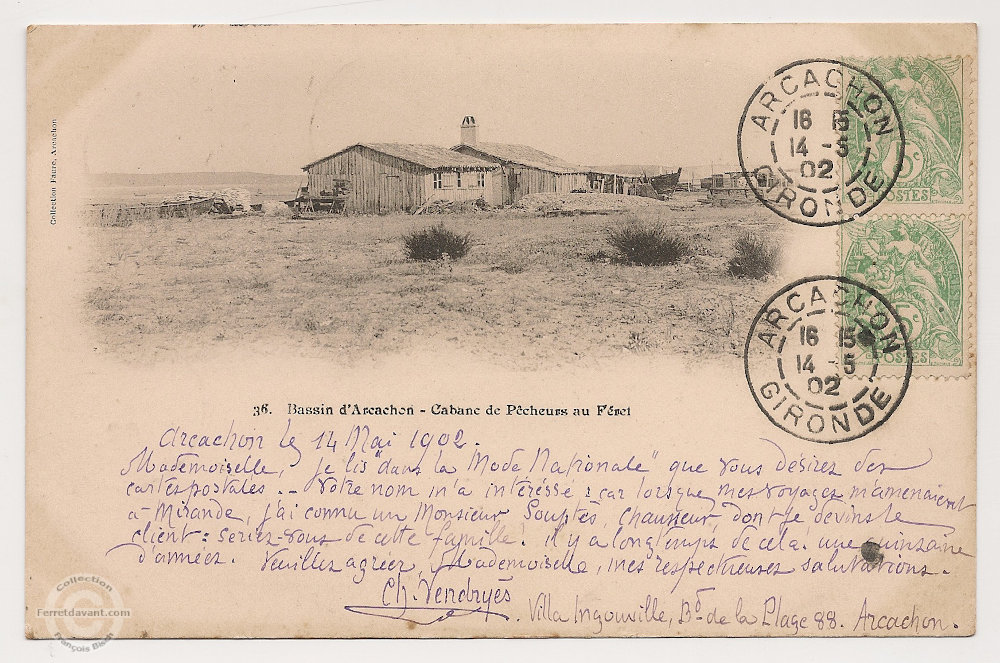 Collection Faure, Arcachon
ARCACHON
16 15
14 - 5
02
GIRONDE
5 c
POSTES
ARCACHON
16 15
14 - 5
02
GIRONDE
POSTES
36. Bassin d'Arcachon - Cabane de Pêcheurs au Féret
Arcachon le 14 Mai 1902.
Mademoiselle, je lis "dans la Mode Nationale" que vous désirez des
cartes postales. -- Votre nom m'a intéressé : car lorsque mes voyages m'amenaient
à Mirande, j'ai connu un Monsieur Souptès, Chausseur, dont je devins le
client : seriez-vous de cette famille ! il y a longtemps de cela ! une quinzaine
d'années. Veuillez agréer, Mademoiselle, mes respectueuses salutations.
Ch. Vendryès
Villa Ingouville, Bd. de la Plage 88. Arcachon.
Collection
Ferretdavant.com
François Bisch